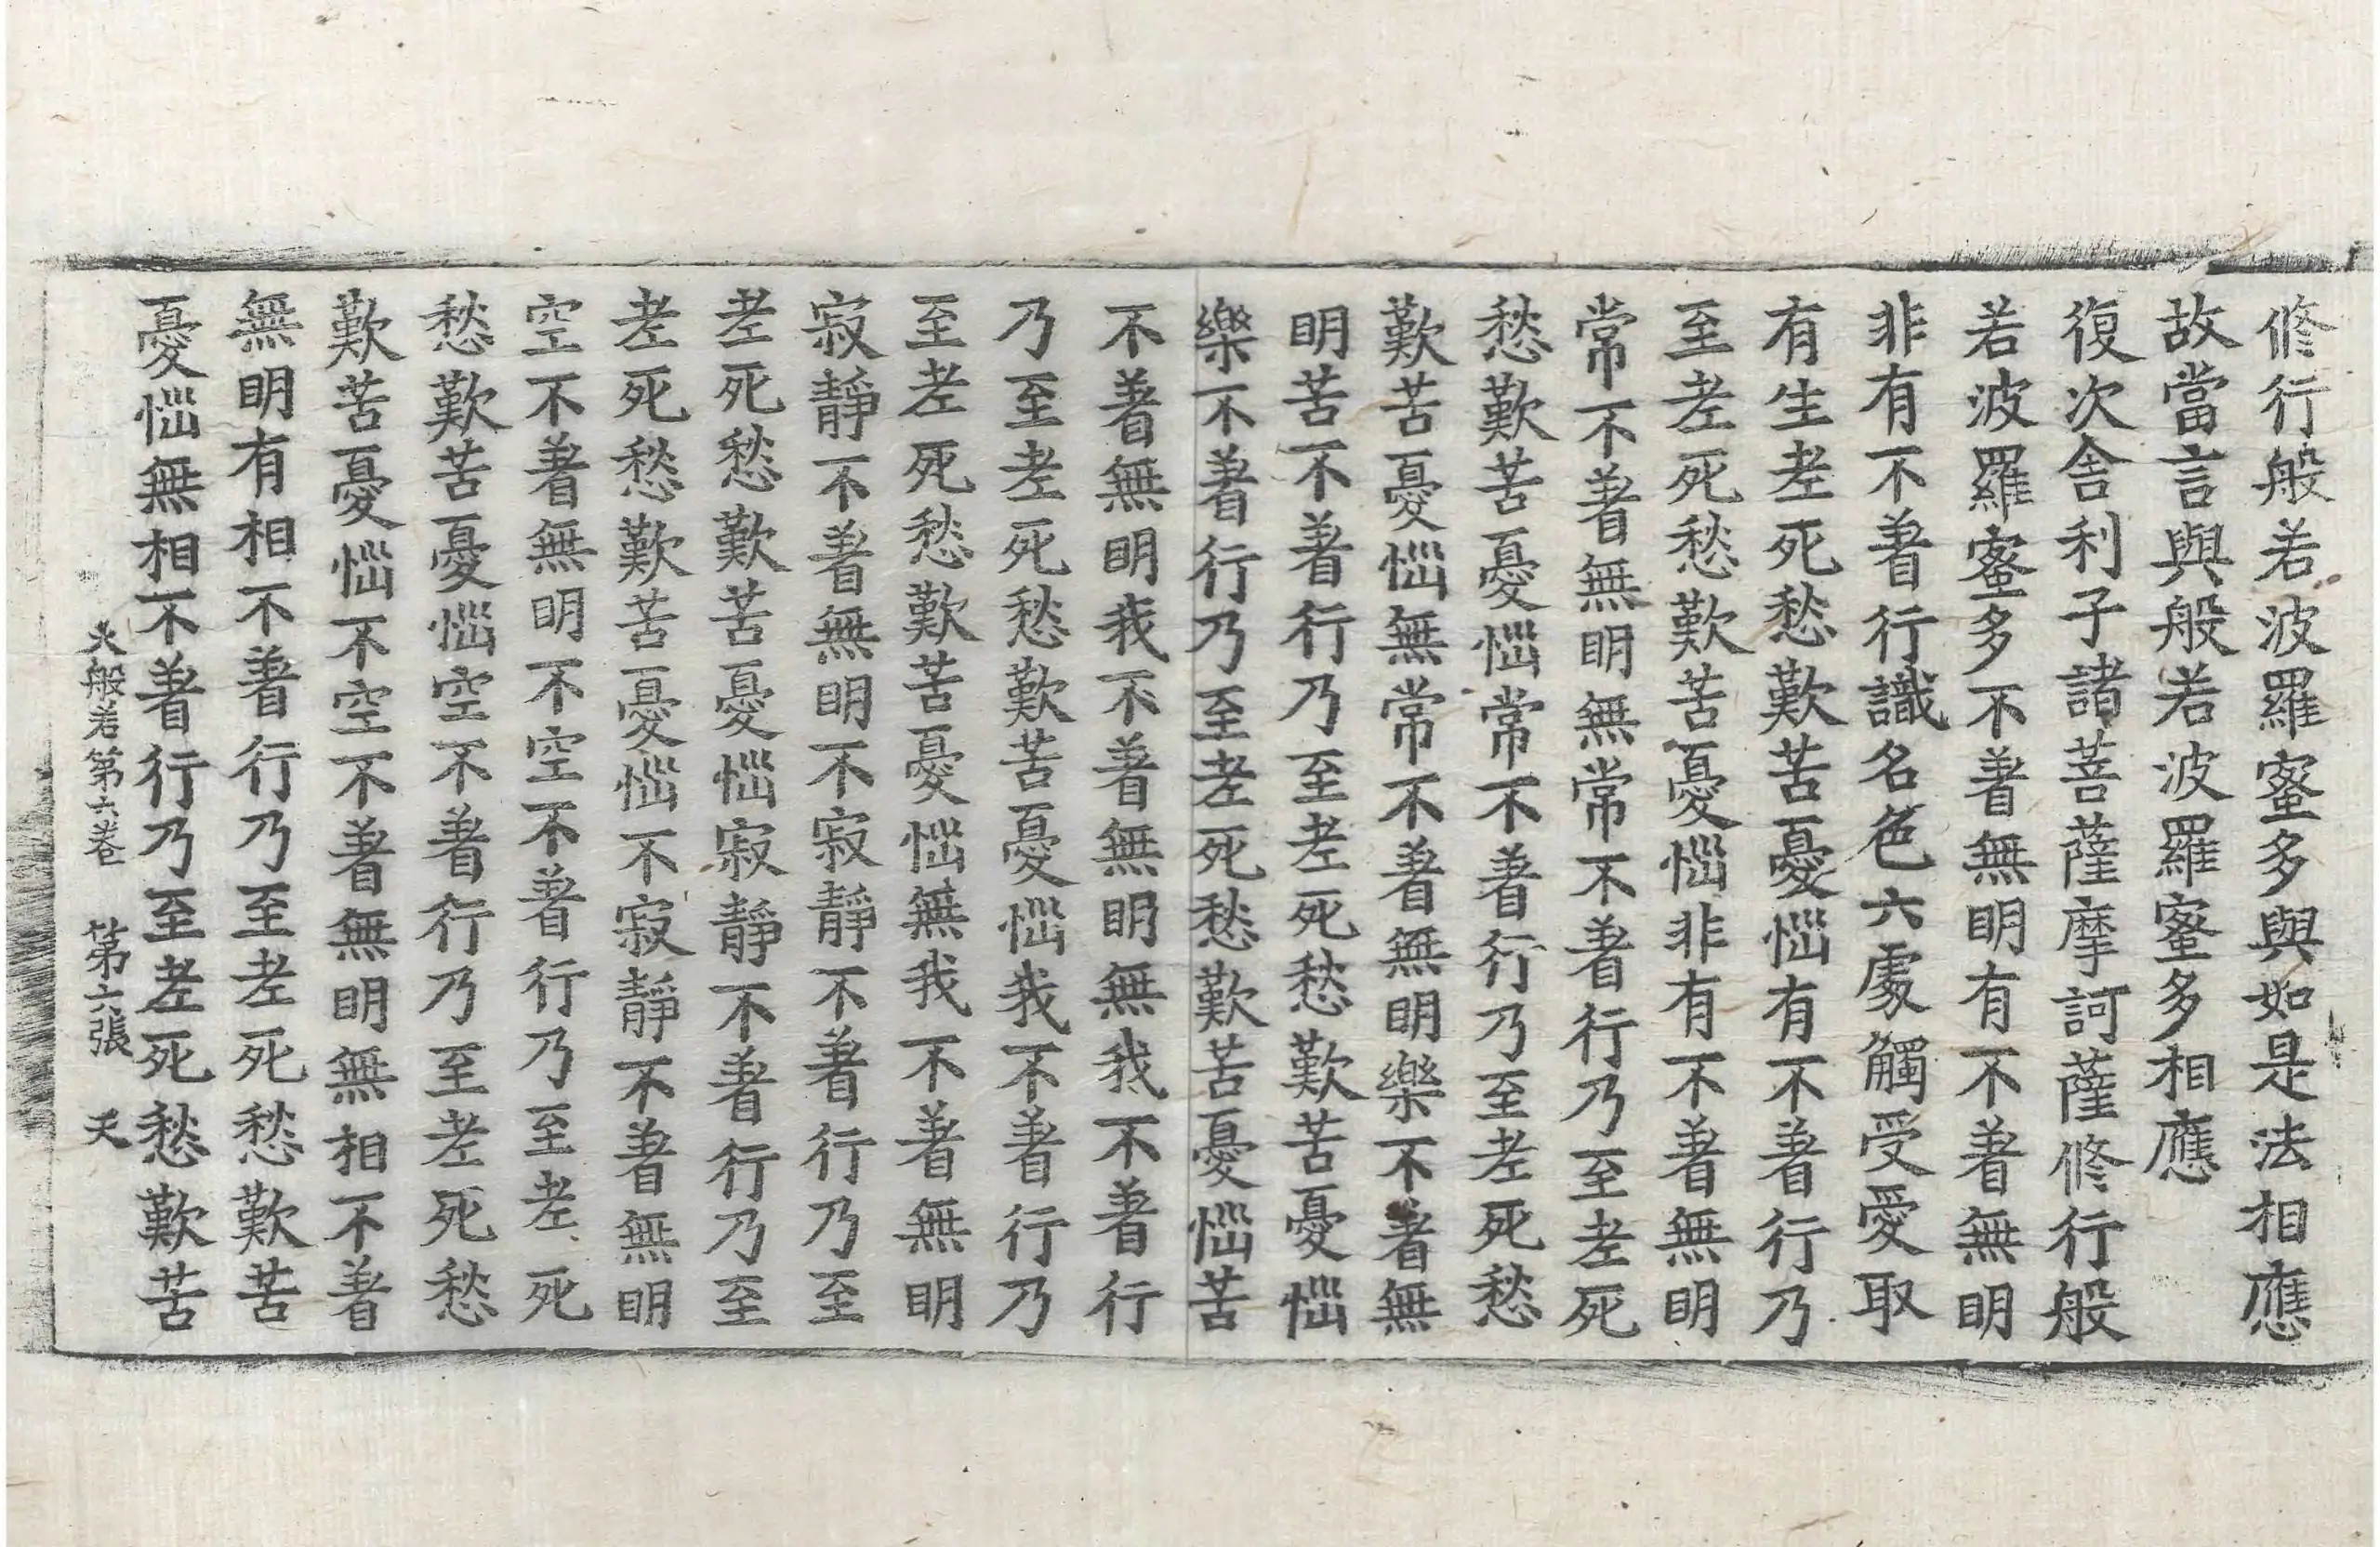 修行般若波羅蜜多與如是法相應
故當言與般若波羅蜜多相應
復次舍利子諸菩薩摩訶薩修行般
若波羅蜜多不著無明有不著無明
非有不著行識名色六處觸受愛取
有生老死愁歎苦憂惱有不著行乃
至老死愁歎苦憂惱非有不著無明
常不著無明無常不著行乃至老死
愁歎苦憂惱常不著行乃至老死愁
歎苦憂惱無常不著無明樂不著無
明苦不著行乃至老死愁歎苦憂惱
樂不著行乃至老死愁歎苦憂惱苦
不著無明我不著無明無我不著行
乃至老死愁歎苦憂惱我不著行乃
至老死愁歎苦憂惱無我不著無明
寂靜不著無明不寂靜不著行乃至
老死愁歎苦憂惱寂靜不著行乃至
老死愁歎苦憂惱不寂靜不著無明
空不著無明不空不著行乃至老死
愁歎苦憂惱空不著行乃至老死愁
歎苦憂惱不空不著無明無相不著
無明有相不著行乃至老死愁歎苦
憂惱無相不著行乃至老死愁歎苦
大般若第六卷 第六張 天